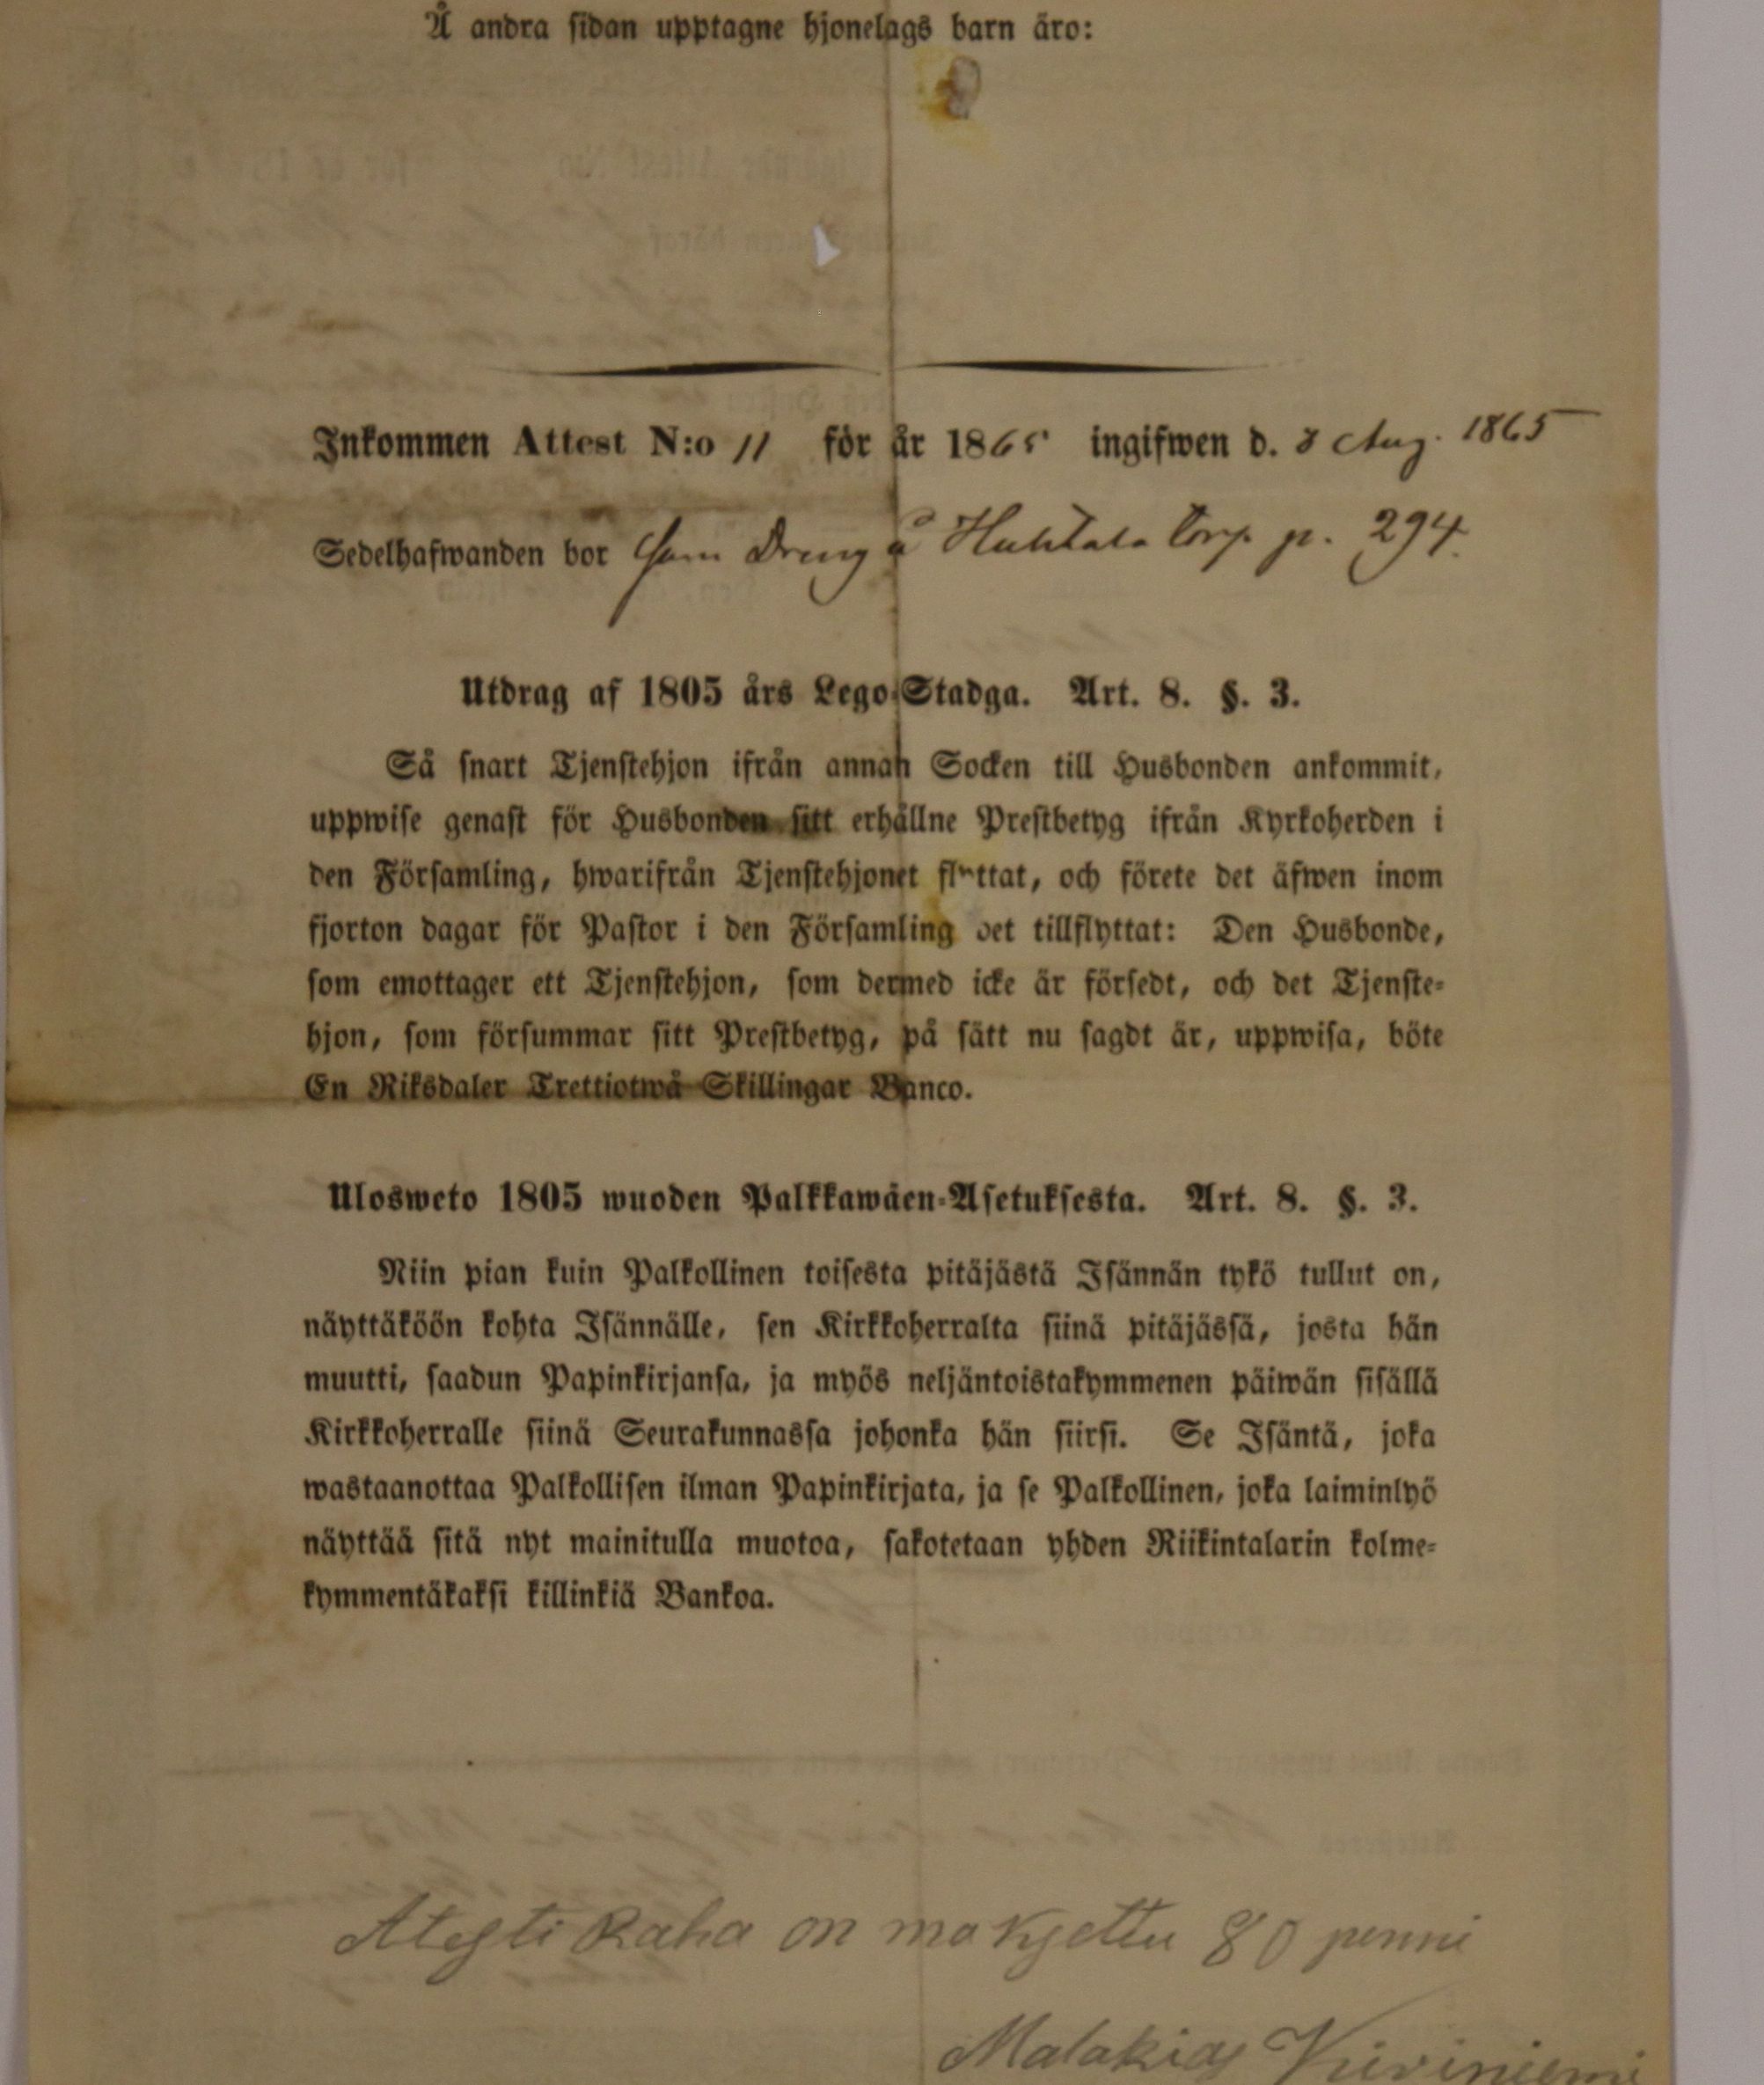 Å andra sidan upptagne hjonelags barn äro:
Inkommen Attest N:o 11 för år 1865 ingifwen d. 8 Aug. 1865
Sedelhafwanden bor som Dreng å Huhtala torp p. 294.
Utdrag af 1805 års Lego-Stadga. Art. 8. §. 3.
Så snart Tjenstehjon ifrån annan Socken till Husbonden ankommit,
uppwise genast för Husbonden sitt erhållne Prestbetyg ifrån Kyrkoherden i
den Församling, hwarifrån Tjenstehjonet flyttat, och förete det äfwen inom
fjorton dagar för Pastor i den Församling det tillflyttat: Den Husbonde,
som emottager ett Tjenstehjon, som dermed icke är försedt, och det Tjenste-
hjon, som försummar sitt Prestbetyg, på sätt nu sagdt är, uppwisa, böte
En Riksdaler Trettiotwå Skillingar Banco.
Ulosweto 1805 wuoden Palkkawäen-Asetuksesta. Art. 8. §. 3.
Niin pian kuin Palkollinen toisesta pitäjästä Isännän tykö tullut on,
näyttäköön kohta Isännälle, sen Kirkkoherralta siinä pitäjässä, josta hän
muutti, saadun Papinkirjansa, ja myös neljäntoistakymmenen päiwän sisällä
Kirkkoherralle siinä Seurakunnassa johonka hän siirsi. Se Isäntä, joka
wastaanottaa Palkollisen ilman Papinkirjata, ja se Palkollinen, joka laiminlyö
näyttää sitä nyt mainitulla muotoa, sakotetaan yhden Riikintalarin kolme-
kymmentäkaksi killinkiä Bankoa.
Atesti Raha on maksettu 80 penni
Malakias Kiviniemi